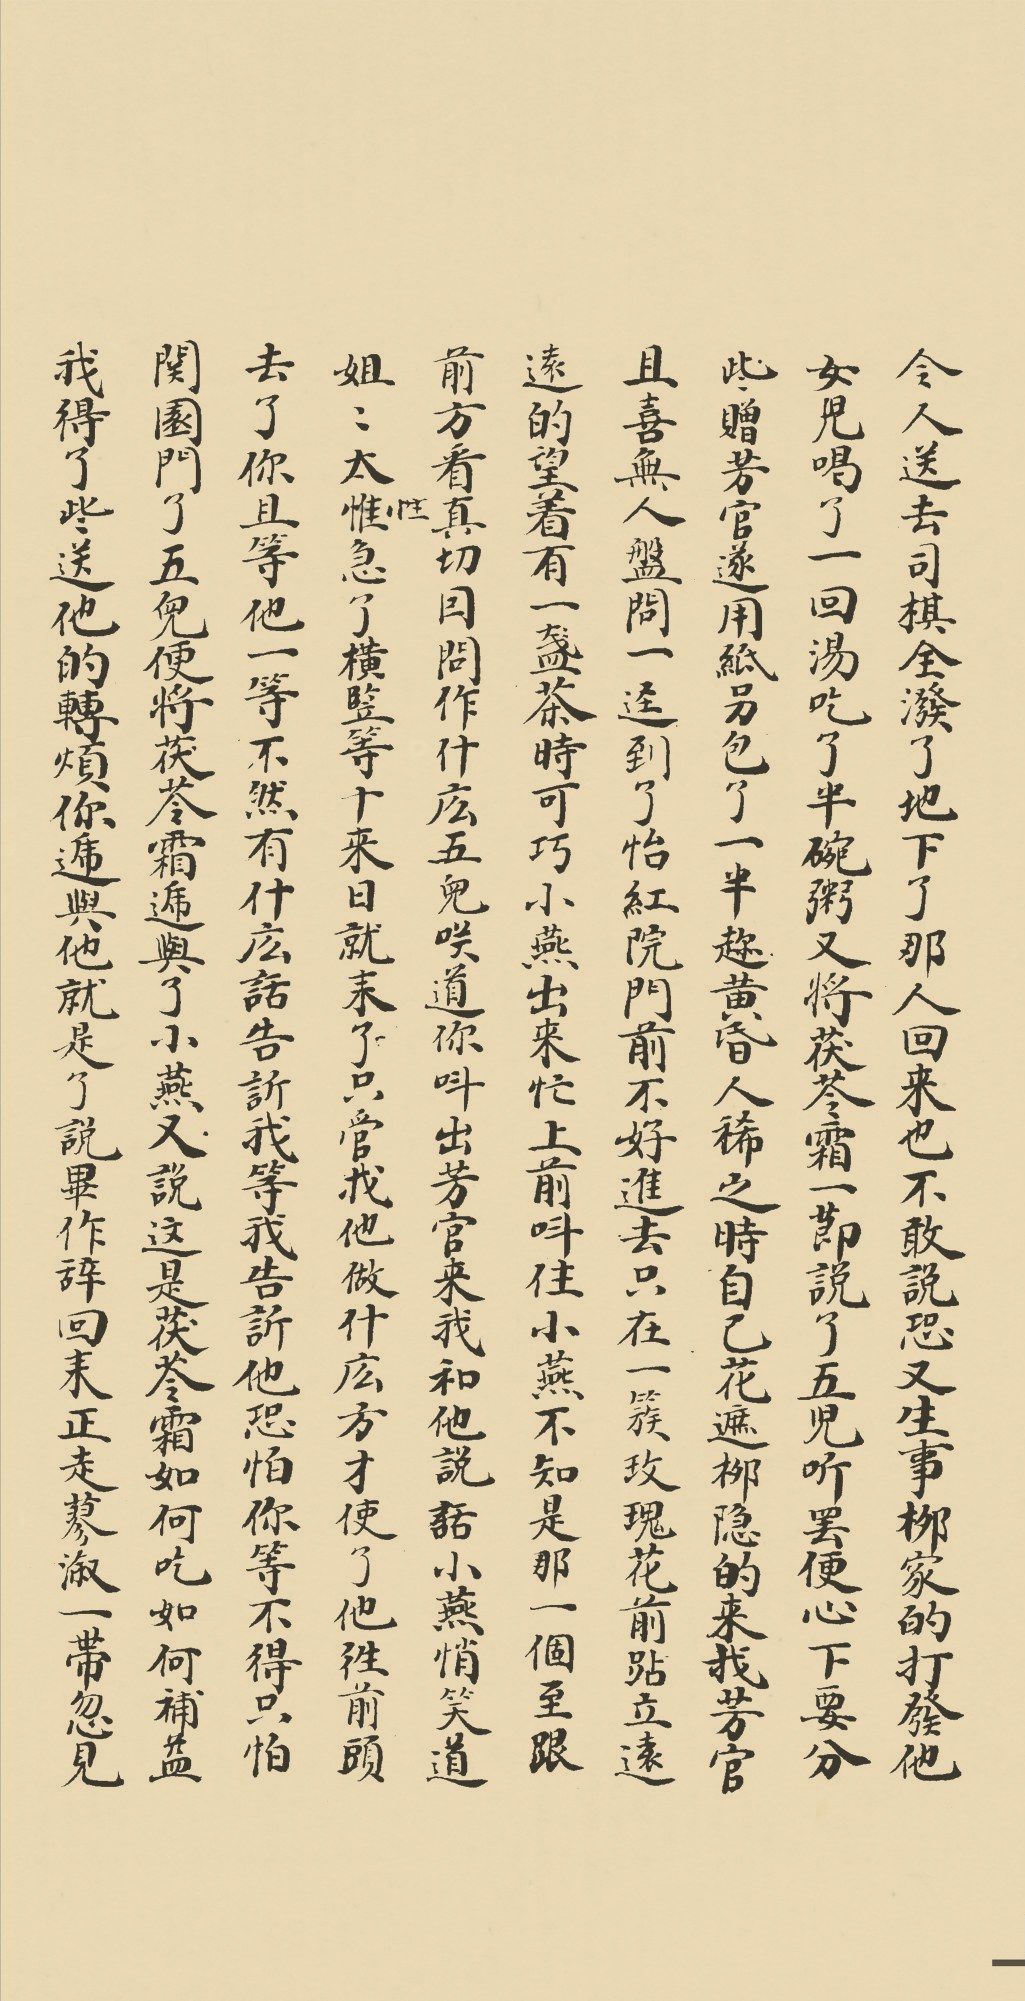 令人送去司棋全潑了地下了那人回来也不敢說恐又生事柳家的打發他
女児喝了一回湯吃了半碗粥又将茯苓霜一節說了五児听罢便心下要分
些贈芳官遂用紙另包了一半趂黄昏人稀之時自己花遮柳隐的来找芳官
且喜無人盤問一迳到了怡紅院門前不好進去只在一簇玫瑰花前跕立遠
遠的望着有一盞茶時可巧小燕出来忙上前呌住小燕不知是那一個至跟
前方看真切因問作什庅五兒咲道你呌出芳官来我和他説話小燕悄笑道
姐〻太惟性急了横竪等十来日就来了只管找他做什庅方才使了他徃前頭
去了你且等他一等不然有什庅話告訴我等我告訴他恐怕你等不得只怕
関園門了五兒便将茯苓霜遞與了小燕又說这是茯苓霜如何吃如何補益
我得了些送他的轉煩你遞與他就是了説畢作辞回来正走蓼溆一带忽見